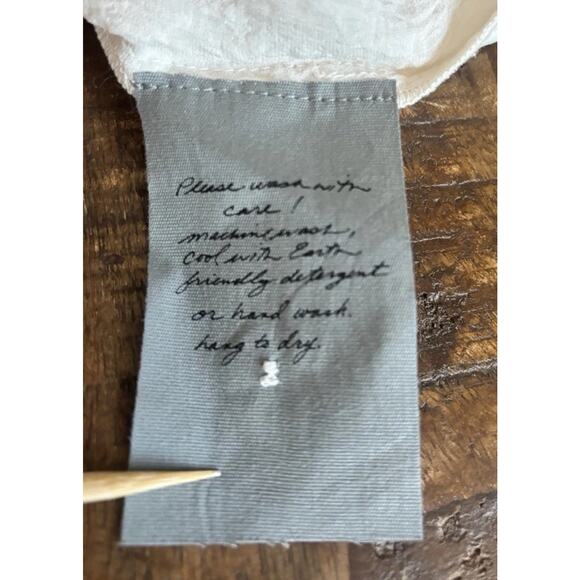 Please wash with
care!
machine wash,
cool with Earth
friendly detergent
or hand wash.
hang to dry.
M